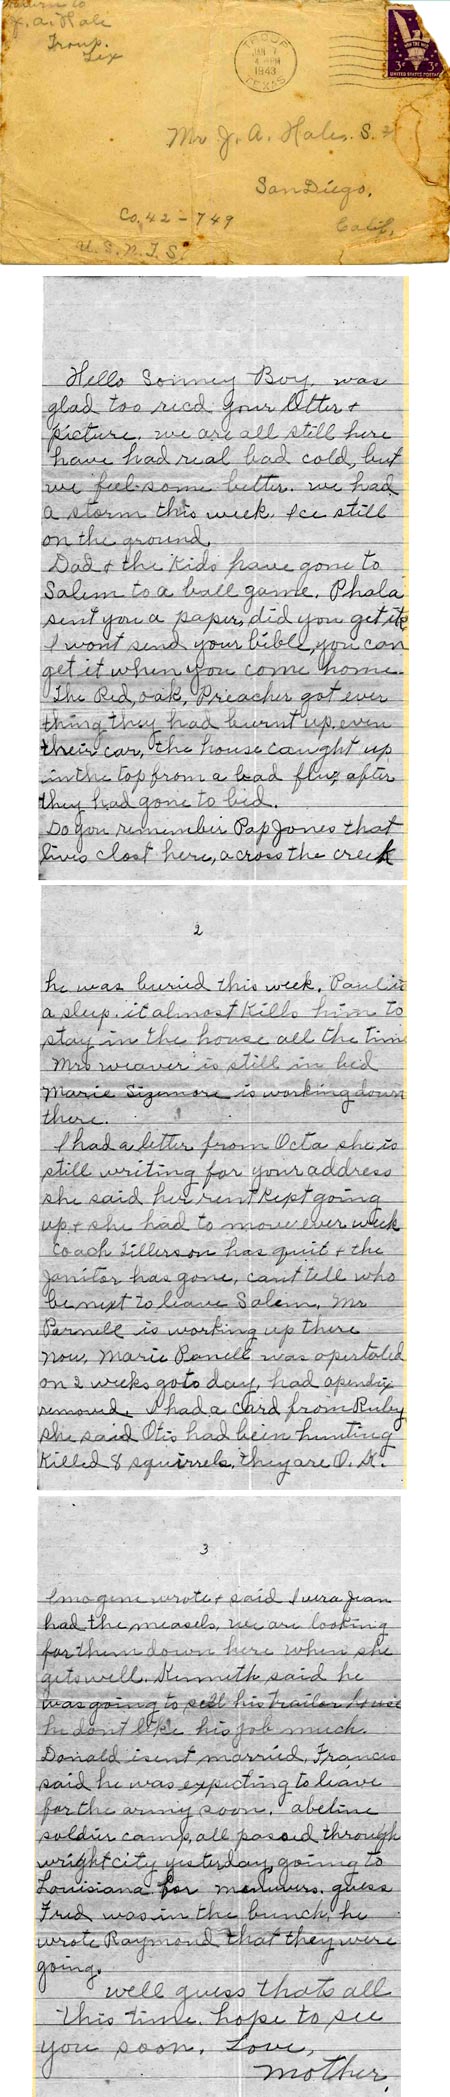 Return to
J. A. Hale
Troup.
Tex
TROUP
JAN 7
4 PM
1943
TEXAS
WIN THE WAR
3¢ 3¢
UNITED STATES POSTAGE
Mr J. A. Hale. S. 2
San Diego.
Calif.
Co. 42 - 749
U. S. N. T. S.
Hello Sonney Boy, was
glad too recd your letter +
picture. we are all still here
have had real bad cold, but
we feel some better. we had
a storm this week. Ice still
on the ground.
Dad + the kids have gone to
Salem to a ball game. Phala
sent you a paper, did you get it
I wont send your bible, you can
get it when you come home.
The Red, oak, Preacher got ever
thing they had burnt up. even
their car, the house caught up
in the top from a bad flue, after
they had gone to bed.
Do you remember Pap Jones that
lives clost here, across the creek
2
he was buried this week. Paul is
a sleep. it almost kills him to
stay in the house all the time
Mrs weaver is still in bed
Marie Sizemore is working down
there.
I had a letter from Octa she is
still writing for your address
she said her rent kept going
up + she had to move ever week
Coach Tillerson has quit + the
janitor has gone, cant tell who
be next to leave Salem, Mr
Parnell is working up there
now. Marie Panell was opertated
on 2 weeks go to day, had apendix
removed. I had a card from Ruby
she said Otis had been hunting
killed 8 squirrels. they are O. K.
3
Imogene wrote + said Ivera Jean
had the measels, we are looking
for them down here when she
gets well. Kenneth said he
was going to sell his trailor house
he dont like his job much.
Donald isent married, Francis
said he was expecting to leave
for the army soon. abeline
soldier camp, all passed through
wright city yesterday, going to
Louisiana for manuvers. guess
Fred was in the bunch, he
wrote Raymond that they were
going.
well guess thats all
this time. hope to see
you soon. Love,
Mother